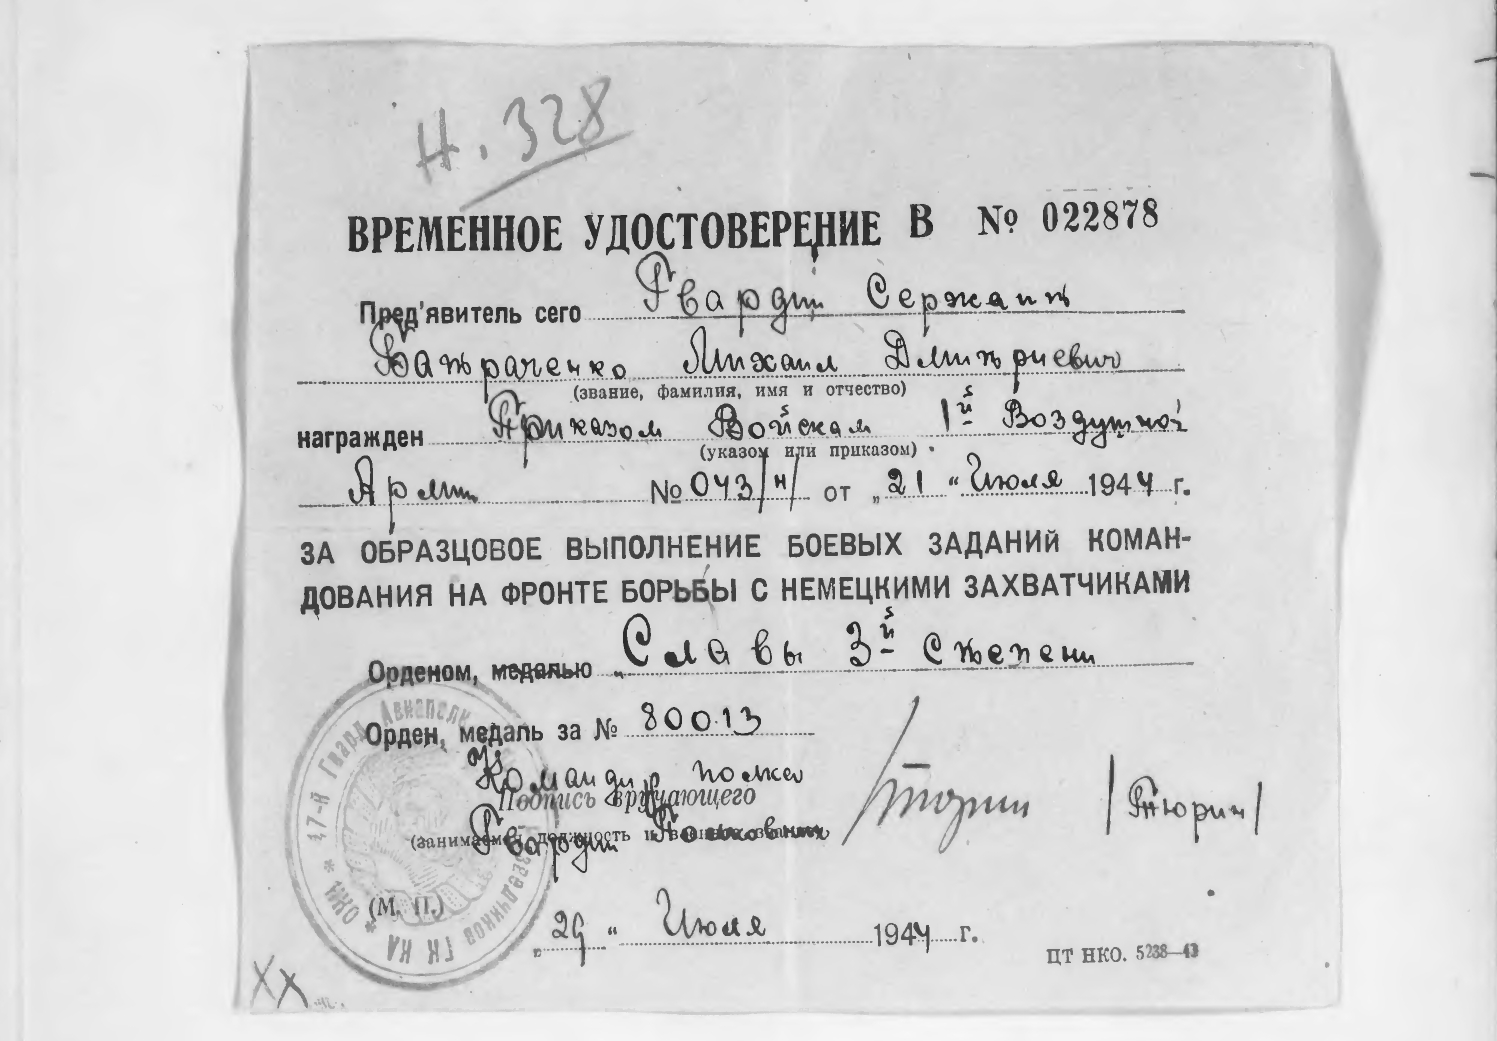 Н. 328
ВРЕМЕННОЕ УДОСТОВЕРЕНИЕ В № 022878
Пред'явитель сего Гвардии Сержант
Батраченко Михаил Дмитриевич
(звание, фамилия, имя и отчество)
награжден Приказом Войскам 1й Воздушной
(указом или приказом)
Армии № 043/н/ от „21“ Июля 1944 г.
ЗА ОБРАЗЦОВОЕ ВЫПОЛНЕНИЕ БОЕВЫХ ЗАДАНИЙ КОМАН-
ДОВАНИЯ НА ФРОНТЕ БОРЬБЫ С НЕМЕЦКИМИ ЗАХВАТЧИКАМИ
Орденом, медалью „Славы 3й Степени
Орден, медаль за № 80013
Командир полка
Подпись вручающего
/Тюрин/
(занимаемая должность и
Гвардии Полковник
(М. П.)
„29“ Июля 1944 г.
ПТ НКО. 5238—43
17-й Гвард. Авиаполк
НКО
ГК КА
XX